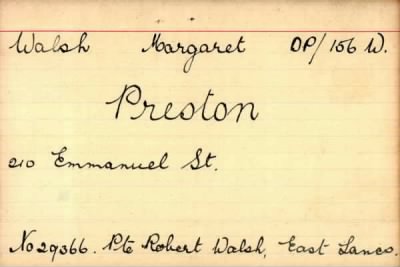 Walsh Margaret DP/156 W.
Preston
210 Emmanuel St.
No 29366. Pte Robert Walsh, East Lancs.